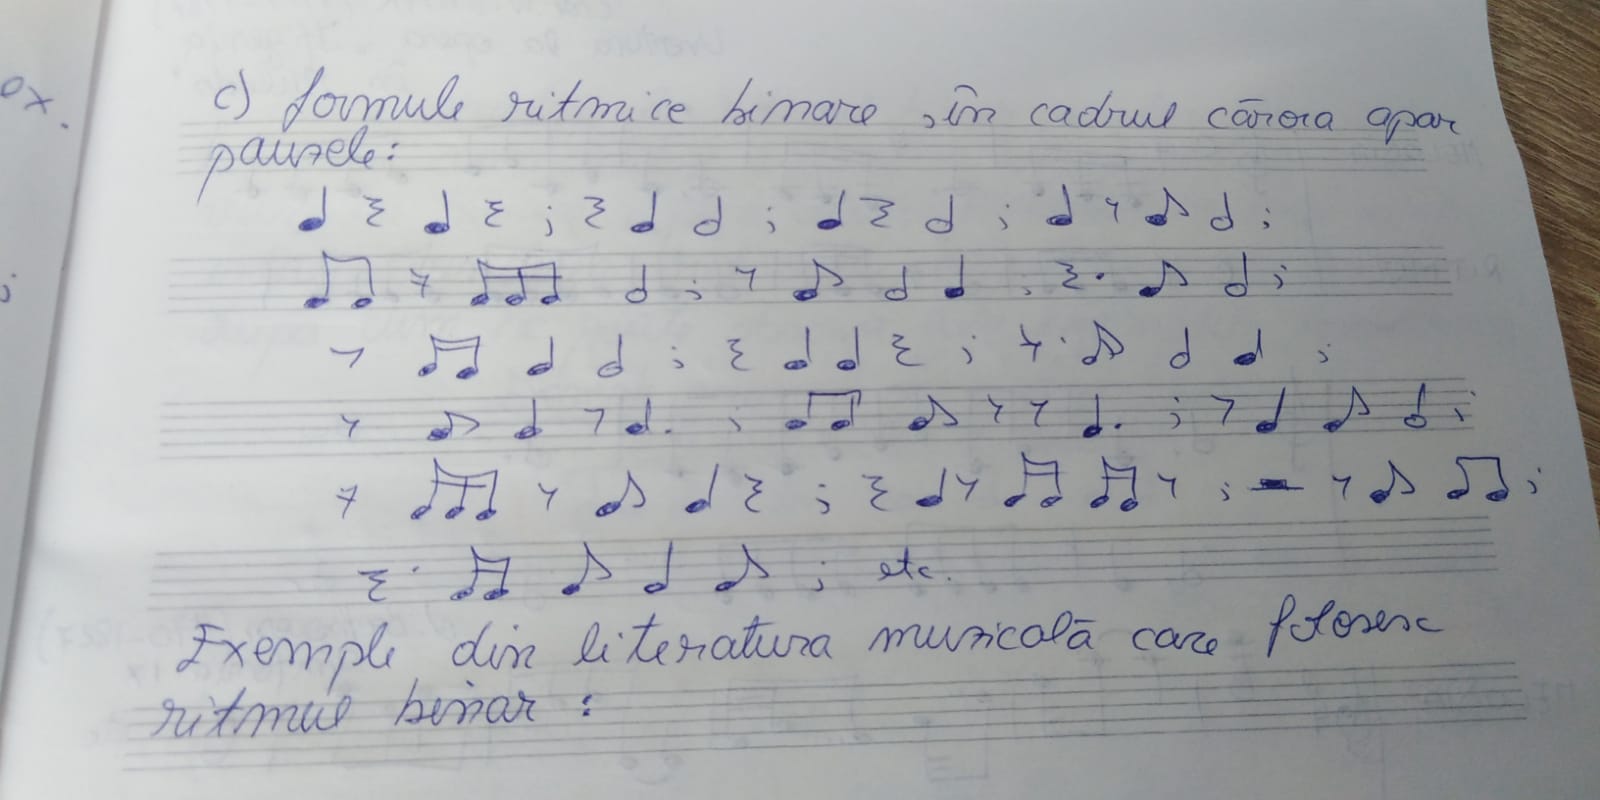 ex.
c) formule ritmice binare, în cadrul cărora apar
pauzele:
; ; ;
; ;
; ; ;
; ; ;
; ; ;
; etc.
Exemple din literatura muzicală care folosesc
ritmul binar :